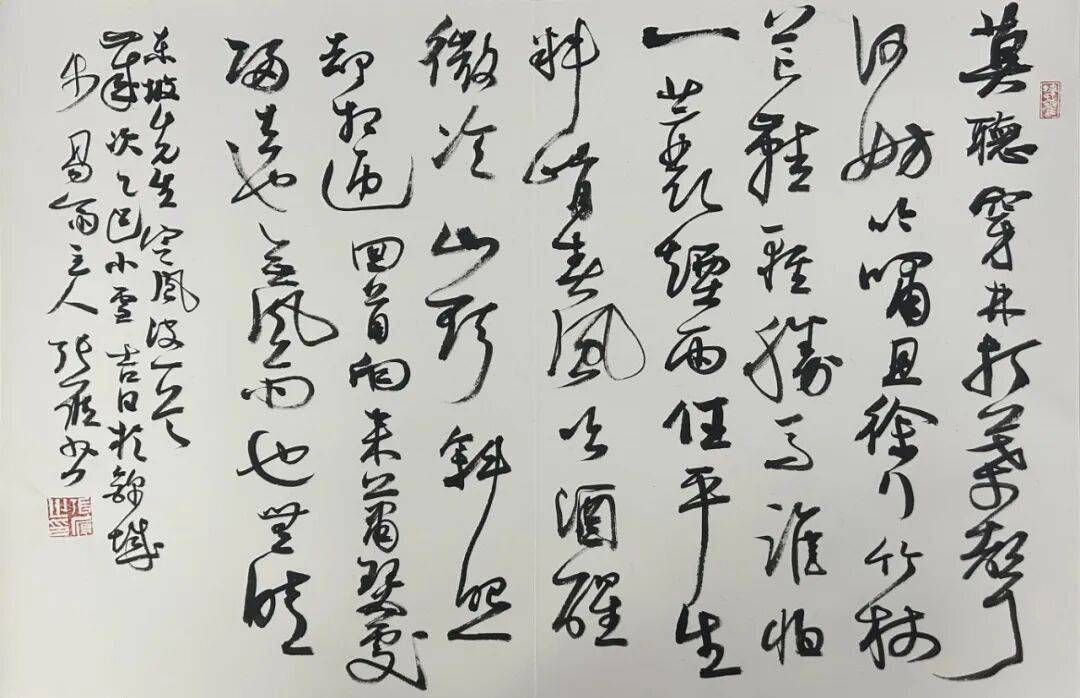 莫聽穿林打葉聲
何妨吟嘯且徐行竹杖
芒鞋輕勝馬誰怕
一蓑煙雨任平生
料峭春風吹酒醒
微冷山頭斜照
却相迎回首向來蕭瑟處
歸去也無風雨也無晴
東坡先生定風波一首
歲次乙巳小雪吉日於錦城
主人張